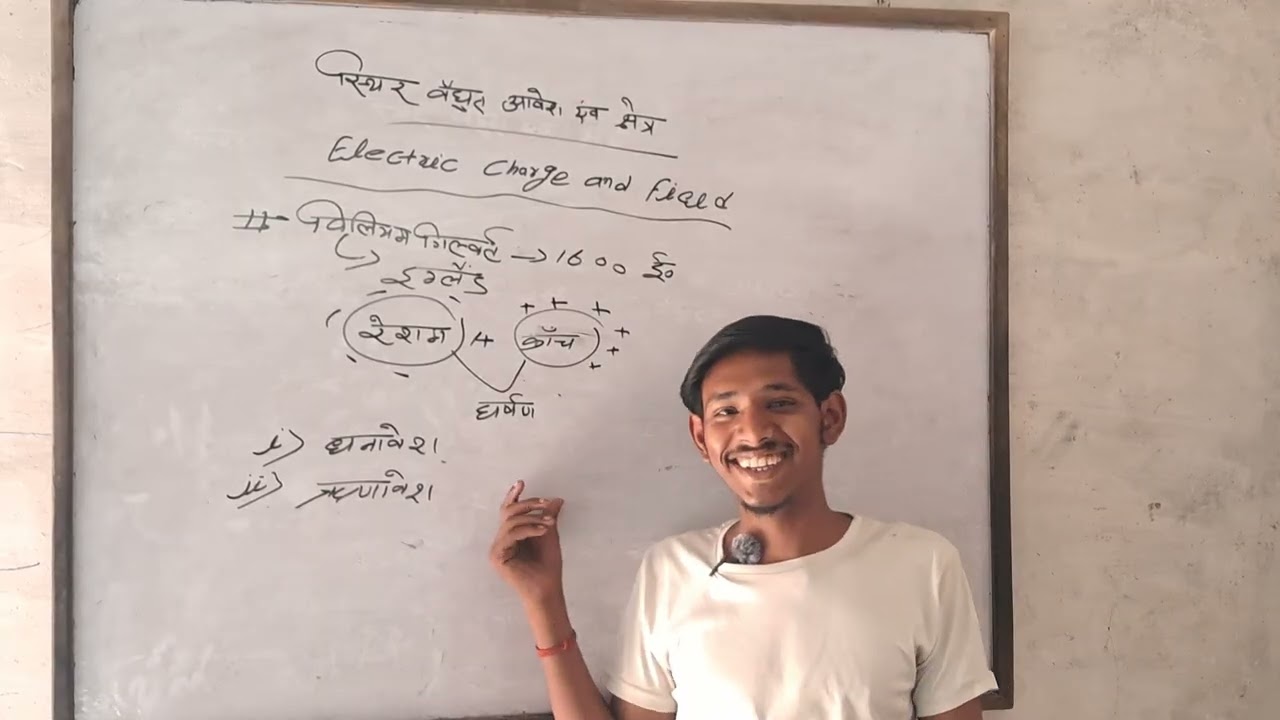 स्थिर वैद्युत आवेश एंव क्षेत्र
Electric Charge and Field
# विलियम गिल्बर्ट → 1600 ई०
इग्लैंड
रेशम + काँच
घर्षण
i) धनावेश
ii) ऋणावेश